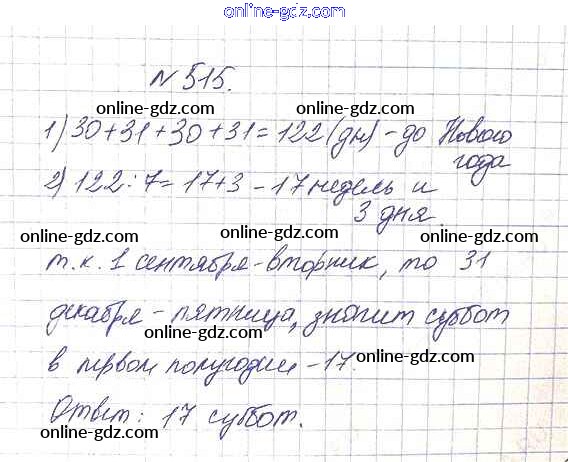 online-gdz.com
N 515.
online-gdz.com online-gdz.com
1) 30+31+30+31=122(дн) - до Нового
года
2) 122:7=17+3 - 17 недель и
3 дня
online-gdz.com online-gdz.com
т.к. 1 сентября-вторник, то 31
декабря - пятница, значит суббот
online-gdz.com online-gdz.com
в первом полугодии - 17.
Ответ: 17 суббот.
online-gdz.com online-gdz.com